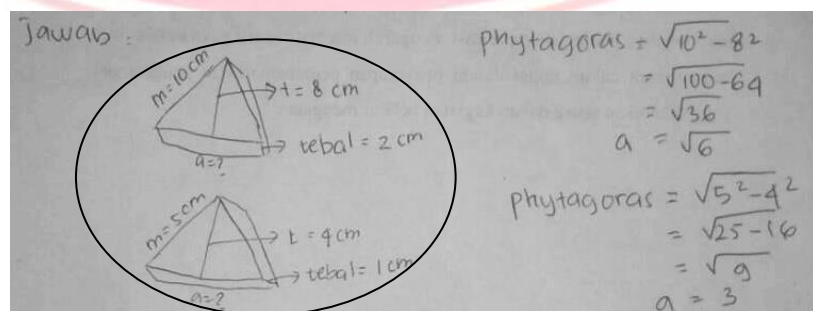 Jawab :
m=10cm
t = 8 cm
tebal = 2 cm
a=?
m=5cm
t = 4cm
tebal = 1 cm
a=?
phytagoras = √10² - 8²
= √100-64
= √36
a = √6
phytagoras = √5²-4²
= √25-16
= √9
a = 3